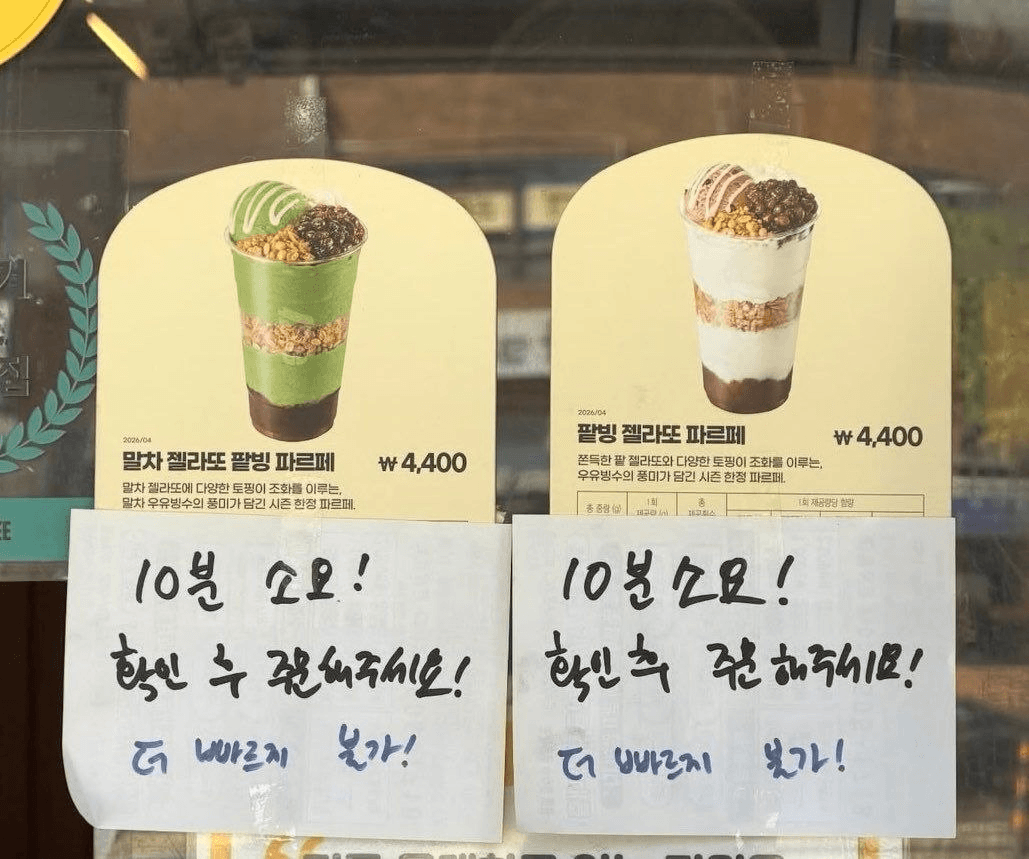 2026/04
말차 젤라또 팥빙 파르페 ₩4,400
말차 젤라또에 다양한 토핑이 조화를 이루는,
말차 우유빙수의 풍미가 담긴 시즌 한정 파르페.
10분 소요!
확인 후 주문해주세요!
더 빠르지 불가!
2026/04
팥빙 젤라또 파르페 ₩4,400
쫀득한 팥 젤라또와 다양한 토핑이 조화를 이루는,
우유빙수의 풍미가 담긴 시즌 한정 파르페.
총 중량 (g) 1회 제공량 (g) 총 제공횟수 1회 제공량당 함량
10분 소요!
확인 후 주문해주세요!
더 빠르지 불가!